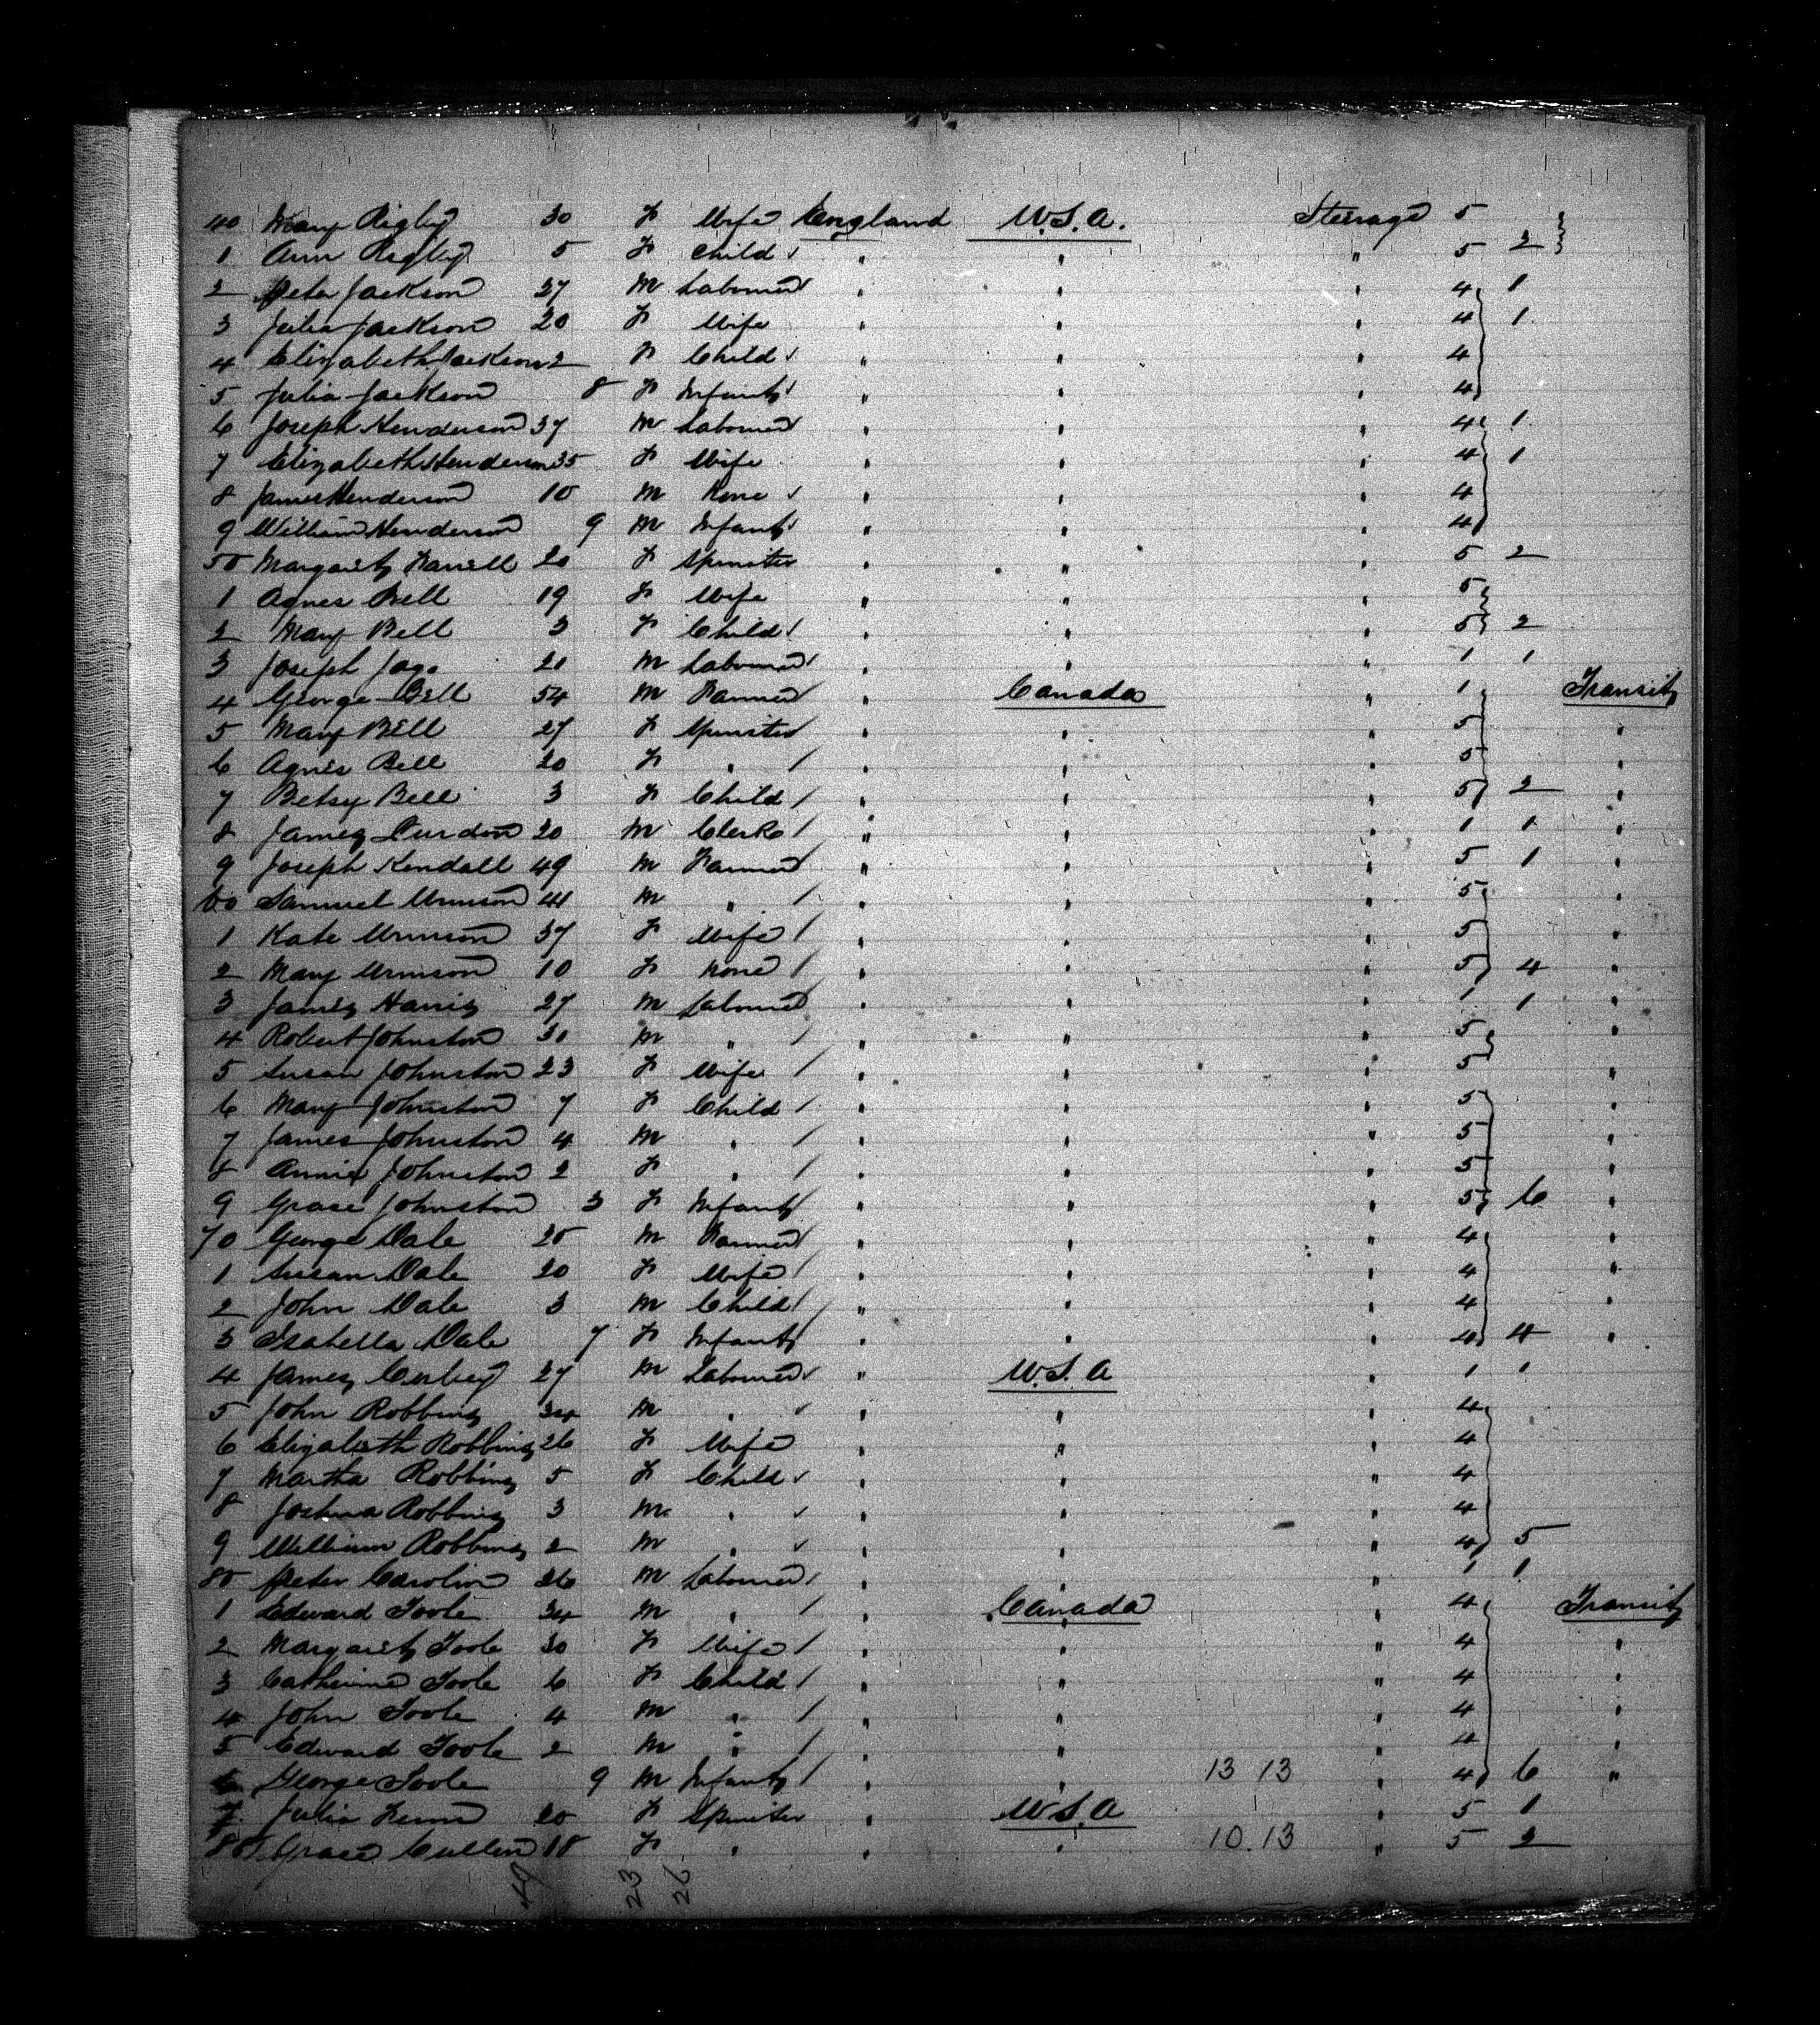 40 Mary Rigby 30 F Wife England U.S.A. Steerage 5
1 Ann Rigby 5 F Child " " " 5 2
2 Peter Jackson 27 M Labourer " " " 4 1
3 Julia Jackson 20 F Wife " " " 4 1
4 Elizabeth Jackson 2 F Child " " " 4
5 Julia Jackson 8 F Infant " " " 4
6 Joseph Henderson 37 M Labourer " " " 4 1
7 Elizabeth Henderson 35 F Wife " " " 4 1
8 James Henderson 10 M None " " " 4
9 William Henderson 9 M Infant " " " 4
50 Margaret Farrell 20 F Spinster " " " 5 2
1 Agnes Bell 19 F Wife " " " 5
2 Mary Bell 3 F Child " " " 5 2
3 Joseph Jago 20 M Labourer " " " 1 1
4 George Bell 54 M Farmer " Canada " 1 Transit
5 Mary Bell 27 F Spinster " " " 5 "
6 Agnes Bell 20 F " " " " 5 "
7 Betsy Bell 3 F Child " " " 5 2 "
8 James 20 M Clerk " " " 1 1 "
9 Joseph Kendall 49 M Farmer " " " 5 1 "
60 Samuel Urmson 41 M " " " " 5 "
1 Kate Urmson 37 F Wife " " " 5 "
2 Mary Urmson 10 F None " " " 5 4 "
3 James Harris 27 M Labourer " " " 1 1 "
4 Robert Johnston 30 M " " " " 5 "
5 Susan Johnston 23 F Wife " " " 5 "
6 Mary Johnston 7 F Child " " " 5 "
7 James Johnston 4 M " " " " 5 "
8 Annie Johnston 2 F " " " " 5 "
9 Grace Johnston 3 F Infant " " " 5 6 "
70 George Dale 25 M Farmer " " " 4 "
1 Susan Dale 20 F Wife " " " 4 "
2 John Dale 3 M Child " " " 4 "
3 Isabella Dale 7 F Infant " " " 4 4 "
4 James 27 M Labourer " U.S.A " 1 1
5 John Robbins 34 M " " " " 4
6 Elizabeth Robbins 26 F Wife " " " 4
7 Martha Robbins 5 F Child " " " 4
8 Joshua Robbins 3 M " " " " 4
9 William Robbins 2 M " " " " 4 5
80 Peter Carolin 26 M Labourer " " " 1 1
1 Edward Toole 34 M " " Canada " 4 Transit
2 Margaret Toole 30 F Wife " " " 4 "
3 Catherine Toole 6 F Child " " " 4 "
4 John Toole 4 M " " " " 4 "
5 Edward Toole 2 M " " " " 4 "
6 George Toole 9 M Infant " " 13 13 " 4 6 "
7 Julia 20 F Spinster " U.S.A " 5 1
88 Grace Cullen 18 F " " " 10.13 " 5 2
23 26